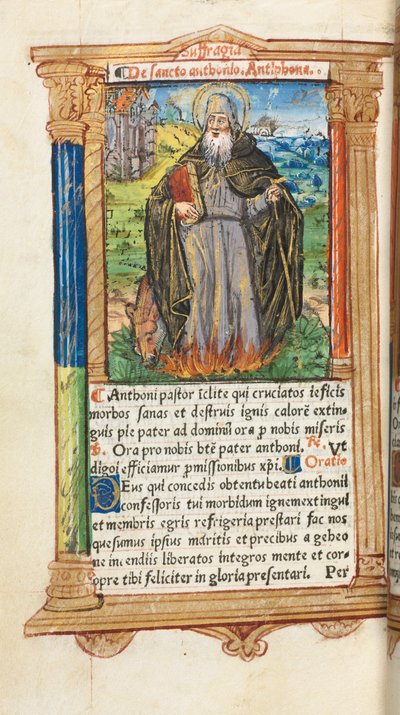 Suffragia
De sancto anthonio. Antiphona.
Anthoni pastor iclite qui cruciatos ieficis
morbos sanas et destruis ignis calorē extin-
guis pie pater ad dominū ora p nobis miseris
℣. Ora pro nobis btē pater anthoni. ℟. Ut
digni efficiamur pmissionibus xp̄i. Oratio
Deus qui concedis obtentu beati anthonii
confessoris tui morbidum ignem extingui
et membris egris refrigeria prestari fac nos
quesumus ipsius meritis et precibus a gehe-
ne incendiis liberatos integros mente et cor-
pore tibi feliciter in gloria presentari. Per